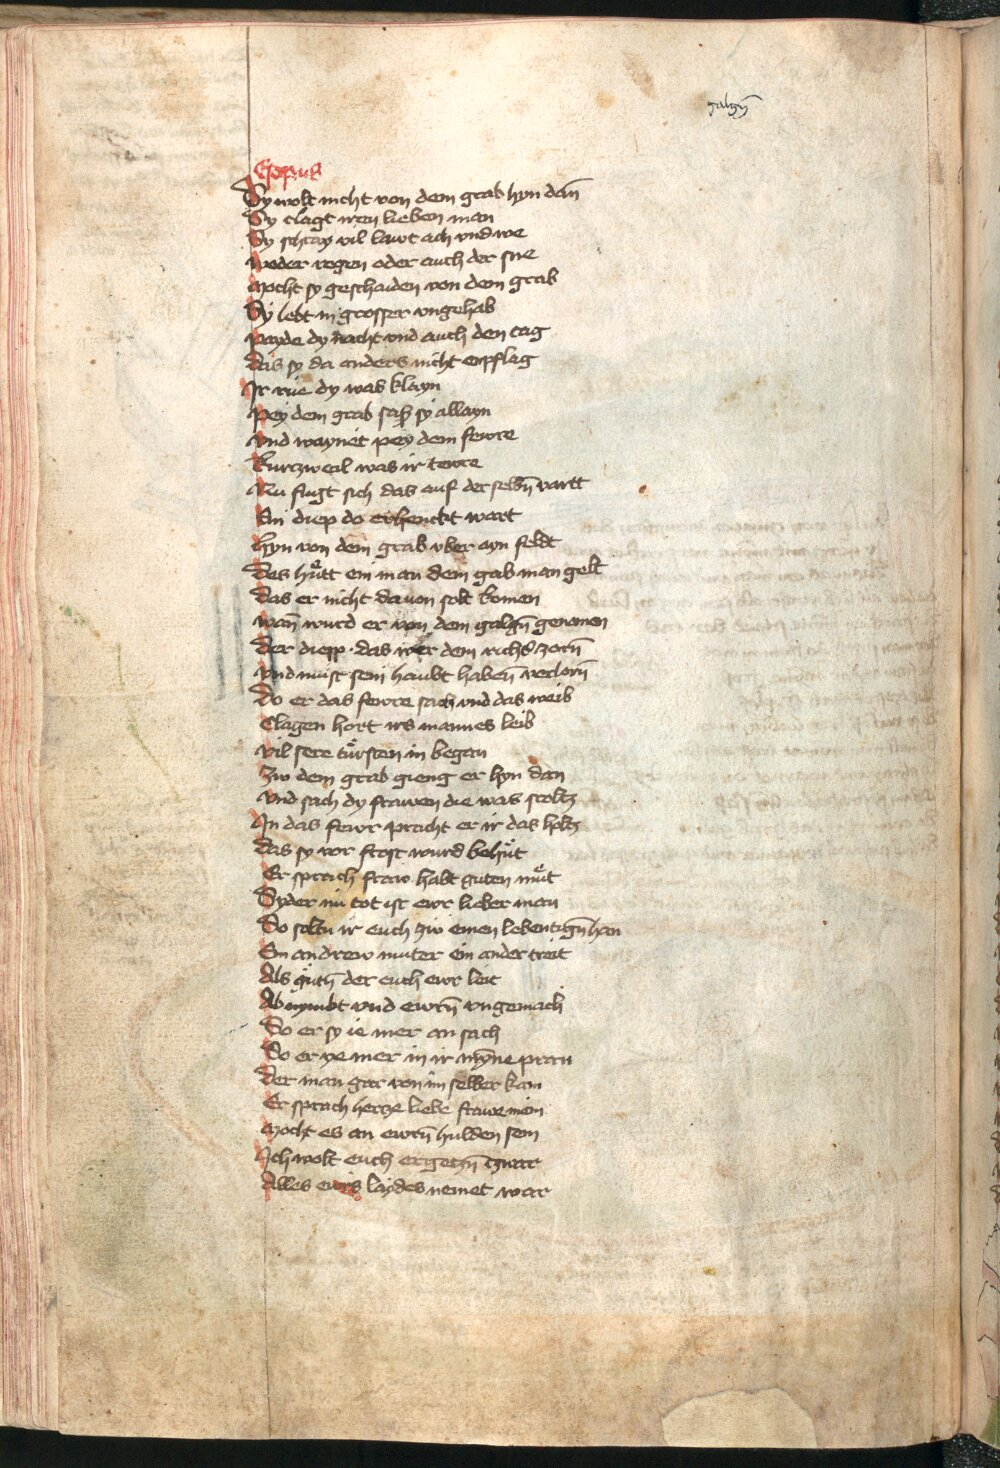 galgñ
Esopus
Sy wolt nicht von dem grab hyn dañ
Sy clagt iren lieben man
Sy schray vil lawt ach vnd we
weder regen oder auch der sne
Mocht sy geschaiden von dem grab
Sy lebt in grosser vngehab
Payde dy nacht vnd auch den tag
Das sy da anders nicht enpflag
Ir rue dy was klayn
Pey dem grab sasz sy allayn
vnd waynet pey dem fewre
kurczweil was ir tewre
Nu fugt sich das auf der selbñ vartt
Ein diep do erhenckt wart
Hyn von dem grab vber ayn feldt
Des hütt ein man dem gab man gelt
Das er nicht dauon solt komen
wañ wurd er von dem galgñ genomen
Der diepp das wer dem richter zorñ
vnd must sein haubt habeñ verlorñ
Do er das fewre sach vnd das weib
Clagen hort irs mannes leib
vil sere türsten in began
Zw dem grab gieng er hyn dan
vnd sach dy frawen die was stoltz
In das fewr pracht er ir das holtz
Das sy vor frost wurd behüt
Er sprach fraw habt guten müt
Syder nu tot ist ewr lieber man
So soltu ir euch zw einen lebentigñ han
Ein andrew muter ein ander treit
Als gutñ der euch ewr leit
Ab nymbt vnd ewrñ vngemach
So er sy ie mer an sach
So er ye mer in ir myñe pran
Der man gar von im selber kam
Er sprach hercze liebe frawe mein
Mocht es an ewrñ hulden sein
Ich wolt euch ergetzñ zwar
Alles ewrs laydes nemet war